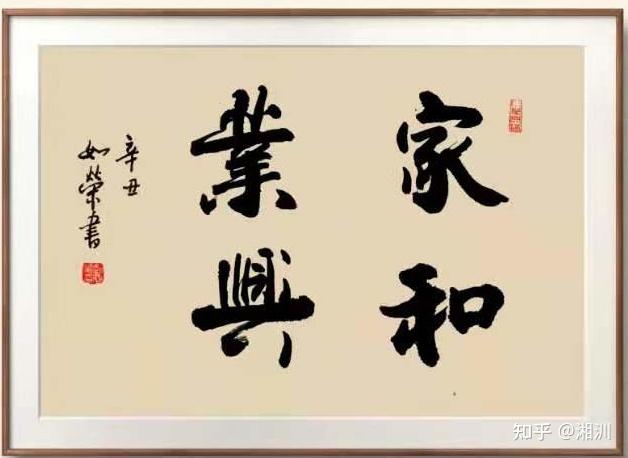 家和
業興
辛丑
如榮書
知乎 @湘洲